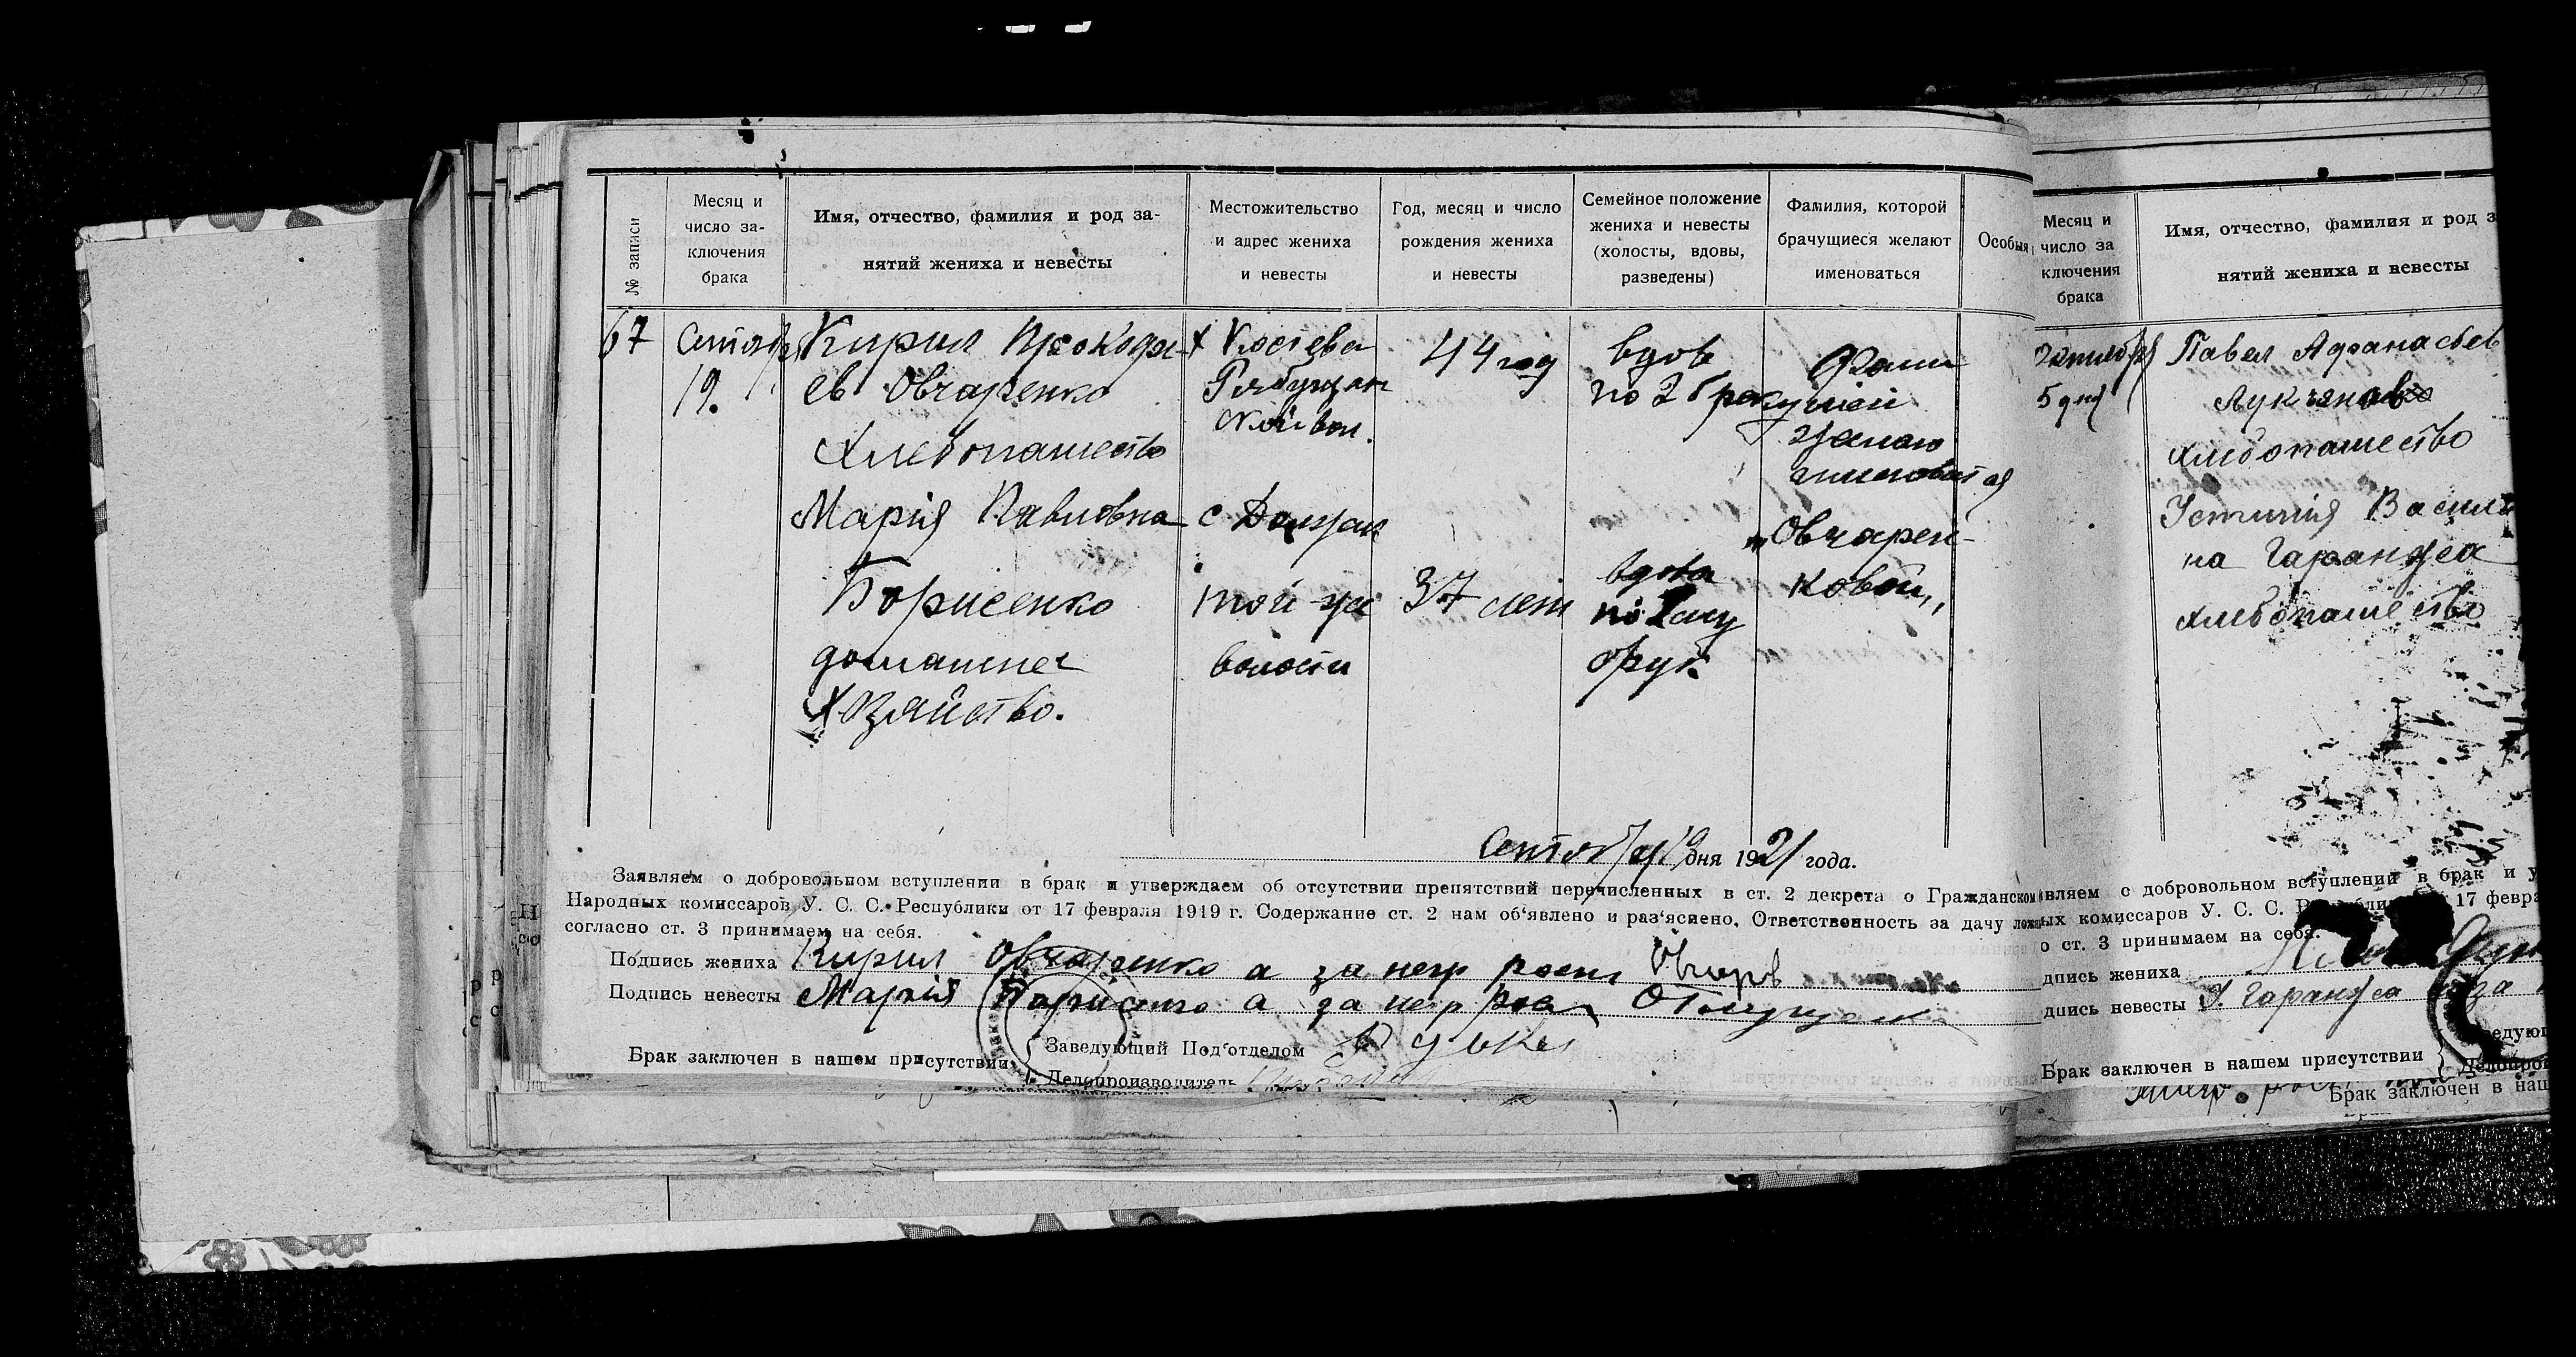 № записи
Месяц и
число за-
ключения
брака
Имя, отчество, фамилия и род за-
нятий жениха и невесты
Местожительство
и адрес жениха
и невесты
Год, месяц и число
рождения жениха
и невесты
Семейное положение
жениха и невесты
(холосты, вдовы,
разведены)
Фамилия, которой
брачущиеся желают
именоваться
Особыя
67
19.
Кирил Прокофи-
ев Овчаренко
Хлебопашество
Мария Павловна
Борисенко
домашнее
Хозяйство.
х Костева
Рябущан
ской вол.
с Должик
той же
волости
44 год
37 лет
вдов
по 2 браку
вдова
по 2му
Фами
лией
желаю
именоватся
„Овчарен-
ковой„
Сентября 19 дня 1921 года.
Заявляем о добровольном вступлении в брак и утверждаем об отсутствии препятствий перечисленных в ст. 2 декрета о Гражданском
Народных комиссаров У. С. С. Республики от 17 февраля 1919 г. Содержание ст. 2 нам об‘явлено и раз‘яснено. Ответственность за дачу лож
согласно ст. 3 принимаем на себя.
Подпись жениха Кирил Овчаренко а за негр росп.
Подпись невесты Мария Борисенко а за негр рос
Брак заключен в нашем присутствии
Заведующий Под‘отделом
Делопроизводитель
Месяц и
число за
ключения
брака
Имя, отчество, фамилия и род з
нятий жениха и невесты
5 дня
Павел Афанасьев
Лукьянов
хлебопашество
Устиния Василь
на Гаранжа
хлебопашество
вляем о добровольном вступлении в брак и у
ых комиссаров У. С. С. 17 февра
о ст. 3 принимаем на себя.
дпись жениха
дпись невесты У. Гаранжа за
Брак заключен в нашем присутствии
Брак заключен в наш